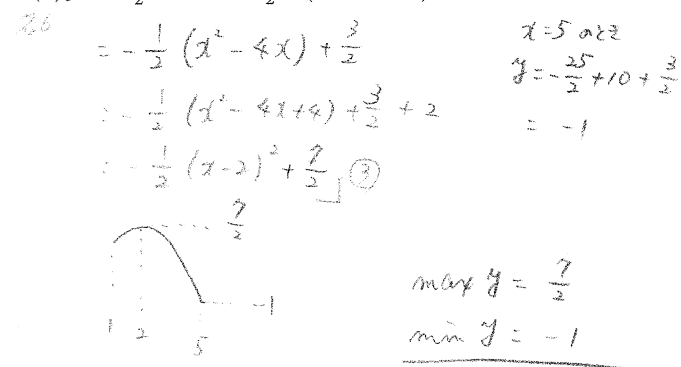 26
= - 1/2 (x² - 4x) + 3/2
= - 1/2 (x² - 4x + 4) + 3/2 + 2
= - 1/2 (x - 2)² + 7/2 ③
x = 5 のとき
y = - 25/2 + 10 + 3/2
= -1
7/2
-1
1 2 5
max y = 7/2
min y = -1